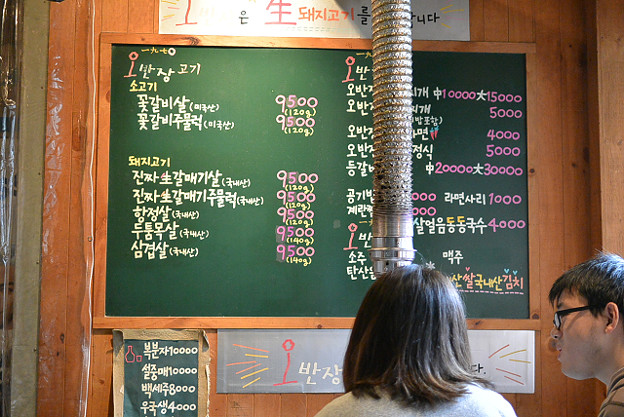 은 生 돼지고기를 니다
一九七〇
오반장 고기
소고기
꽃갈비살(미국산) 9500 (120g)
꽃갈비주물럭(미국산) 9500 (120g)
돼지고기
진짜 生갈매기살(국내산) 9500 (120g)
진짜 生갈매기주물럭(국내산) 9500 (120g)
항정살(국내산) 9500 (120g)
두툼목살(국내산) 9500 (140g)
삼겹살(국내산) 9500 (140g)
오반
오반 찌개 中10000 大15000
오반 찌개 5000
오반 라면 4000
오반 정식 5000
등갈 中20000 大30000
공기밥 라면사리 1000
계란찜
오반
살얼음동동국수 4000
소주 맥주
탄산
산쌀국내산김치
복분자10000
설중매10000
백세주8000
우국생4000
오반장 다.